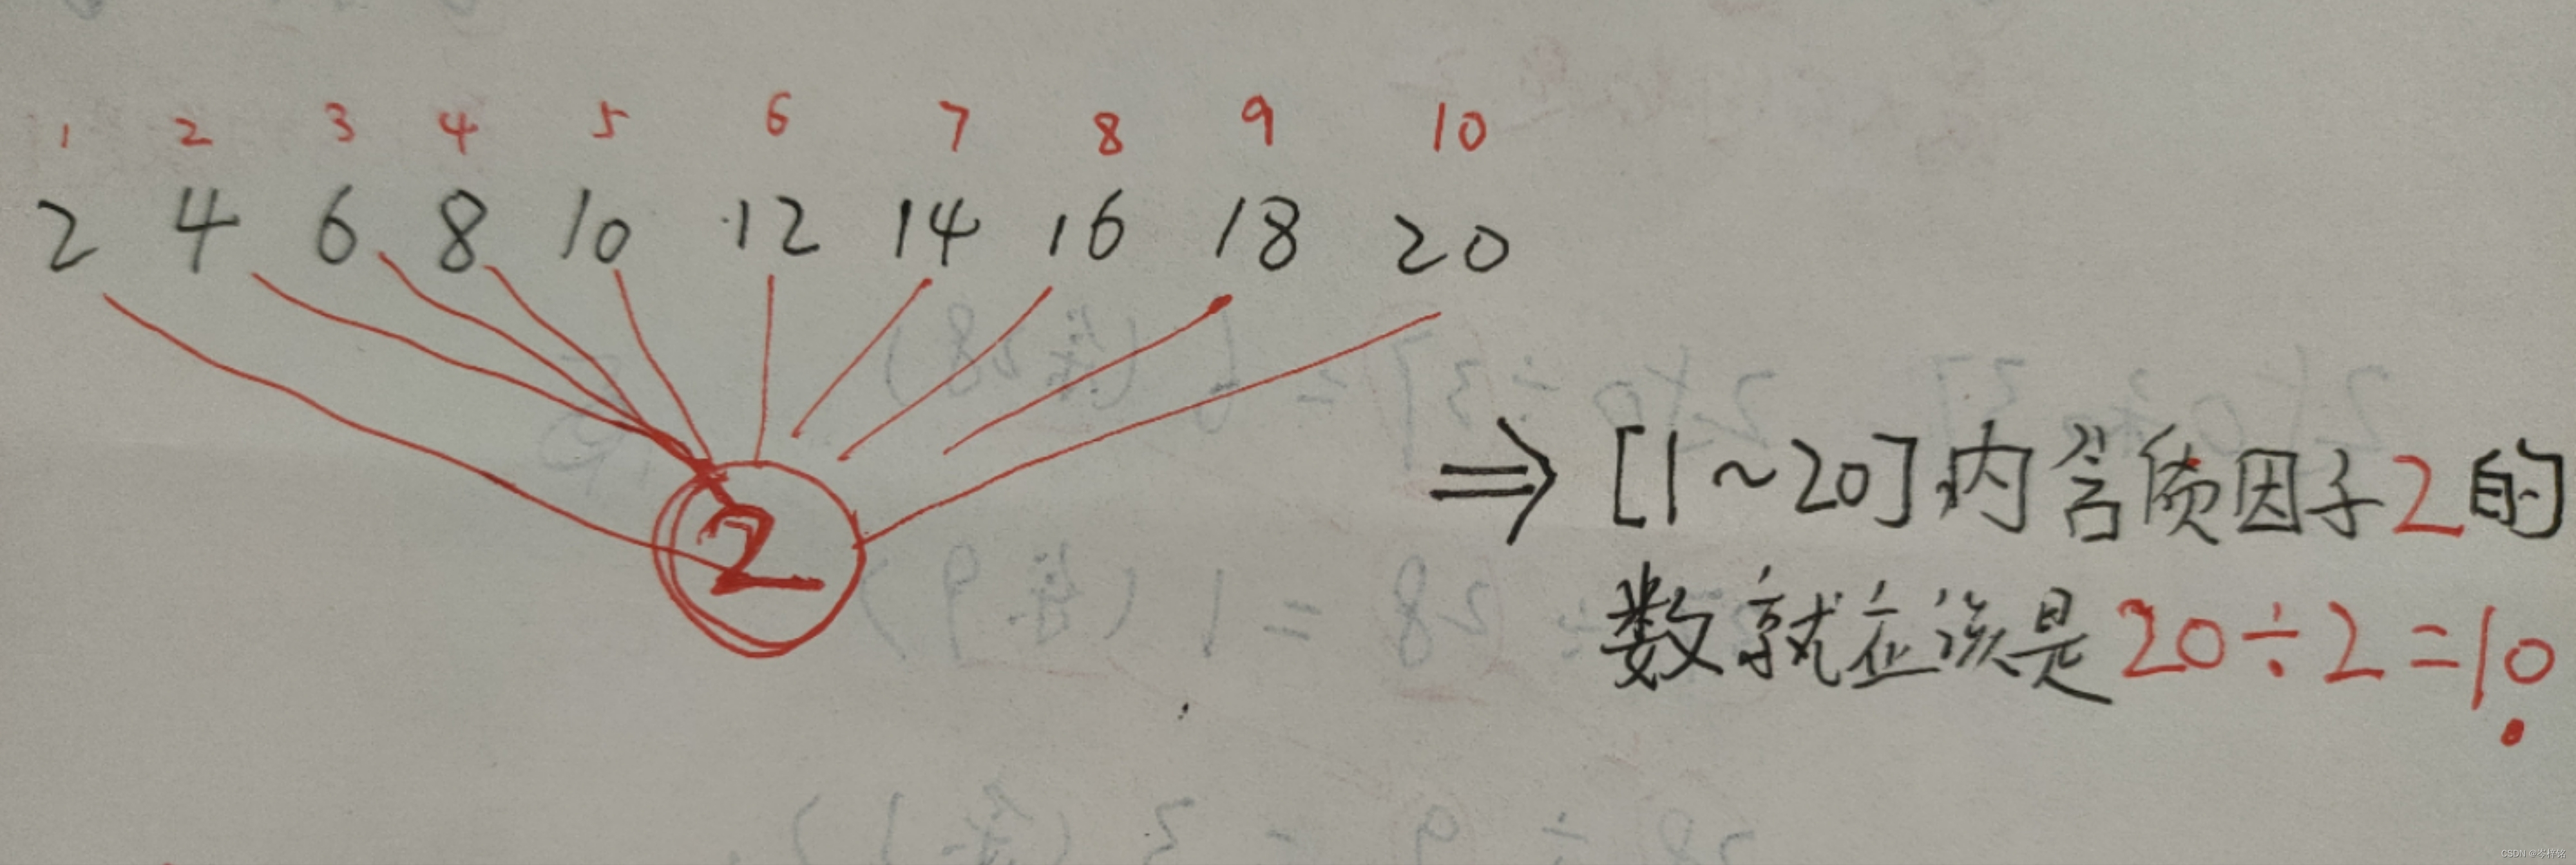 1 2 3 4 5 6 7 8 9 10
2 4 6 8 10 12 14 16 18 20
2
⇒ [1~20]内含质因子2的
数就应该是20÷2=10